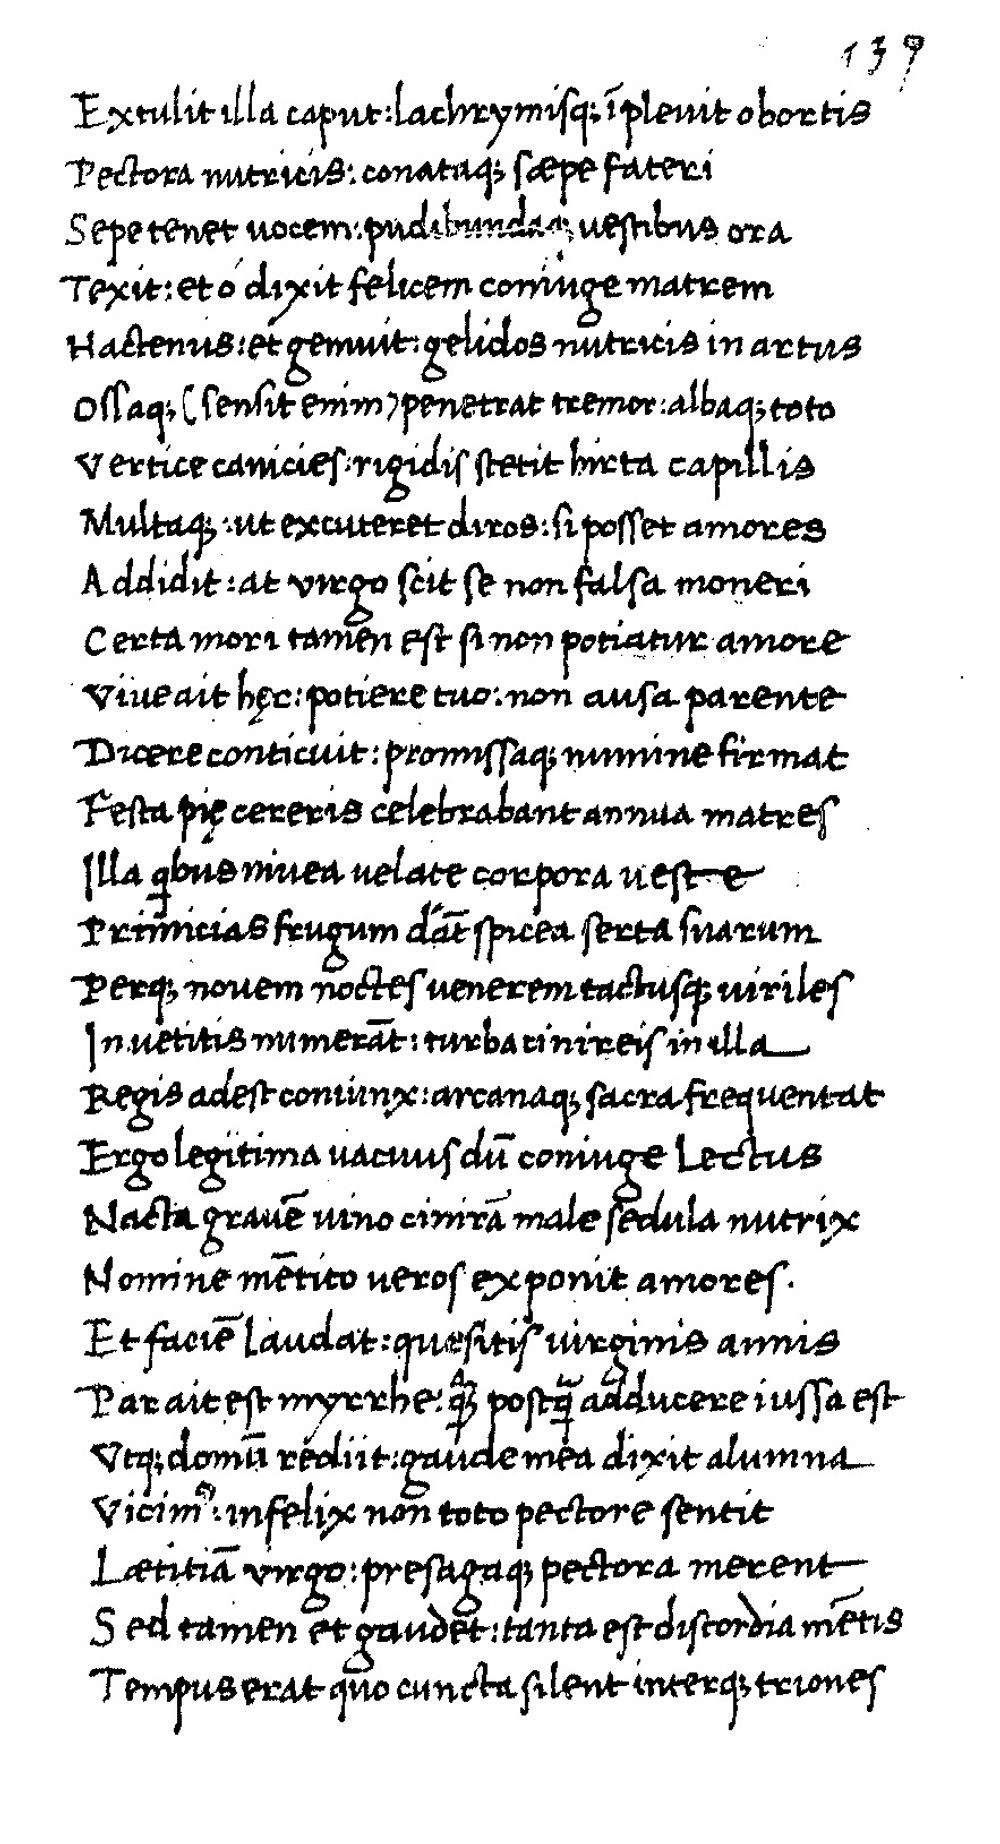 139
Extulit illa caput: lachrymisq; īplenit obortis
Pectora nutricis: conataq; sæpe fateri
Sepe tenet uocem: pudibundaq; uestibus ora
Texit: et ó dixit felicem coniuge matrem
Hactenus: et gemuit: gelidos nutricis in artus
Ossaq; (sensit enim) penetrat tremor: albaq; toto
Vertice canicies: rigidis stetit hirta capillis
Multaq;: ut excuteret diros: si posset amores
Addidit: at virgo scit se non falsa moneri
Certa mori tamen est si non potiatur amore
Viue ait hęc: potiere tuo: non ausa parente
Dicere conticuit: promissaq; numine firmat
Festa pię cereris celebrabant annua matres
Illa qbus niuea uelate corpora ueste
Primicias frugum dāt spicea serta suarum
Perq; nouem noctes uenerem tactusq; uiriles
In uetitis numerāt: turba cinireis in illa
Regis adest coniunx: arcanaq; sacra frequentat
Ergo legitima uacuus dū coniuge Lectus
Nacta grauē uino cinirā male sedula nutrix
Nomine mētito veros exponit amores.
Et faciē laudat: quesitis uirginis annis
Par ait est myrrhe: q̄; postq̄ adducere iussa est
Vtq; domū rediit: gaude mea dixit alumna
Vicim⁹: infelix non toto pectore sentit
Lætitiā virgo: presagaq; pectora merent
Sed tamen et gaudet: tanta est discordia mētis
Tempus erat quo cuncta silent interq; triones